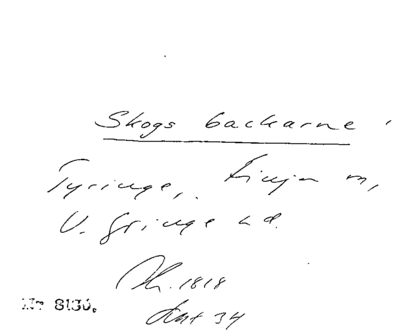 Skogs backarne
Tyringe, Finja m,
V. Göinge hd.
1818
34
Nr 8130.